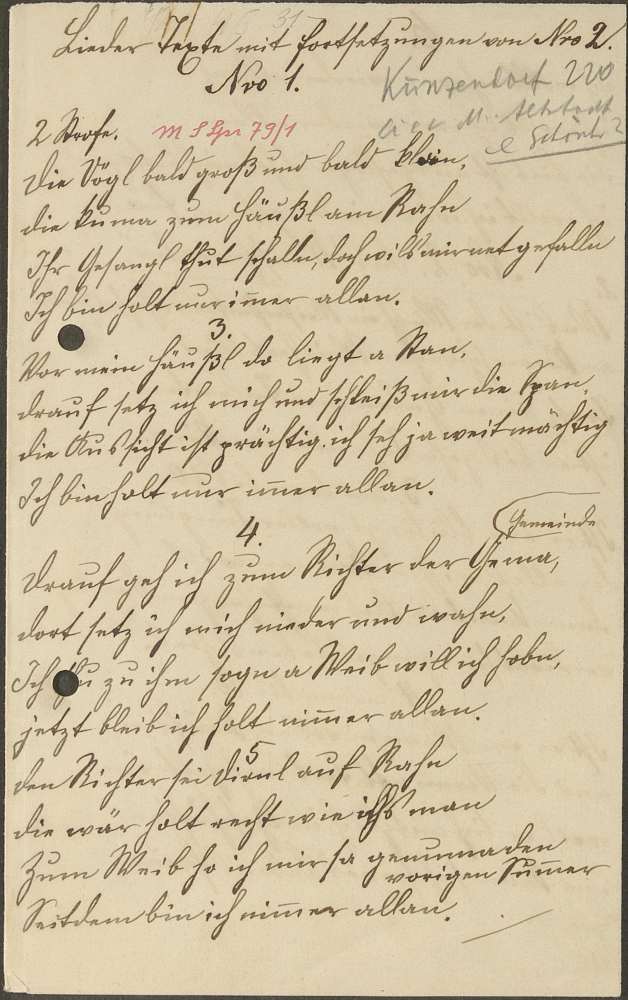 Lieder Texte mit Fortsetzungen von Nro 2.
Nro 1.
Kunzendorf 220
M. Altstadt
2 Strofe.
m S Spr 79/1
Die Vögl bald groß und bald klein,
die kuma zum Häußl am Rahn
Ihr Gesangl thut schalln, doch wils mir net gefalln
Ich bin holt nur immer allan.
3.
Vor mein Häußl do liegt a Stan,
drauf setz ich mich und schleiß mir die Span,
die Aussicht ist prächtig, ich seh ja weitmächtig
Ich bin holt nur immer allan.
4.
(Gemeinde
Drauf geh ich zum Richter der Gema,
dort setz ich mich nieder und wahn,
Ich zu ihm sogn a Weib will ich hobn,
jetzt bleib ich holt nimmer allan.
5
den Richter sei Dirnl auf Rahn
die wär holt recht wie ichs man
Zum Weib ho ich mir sa genumma den
vorigen Summer
Seitdem bin ich nimmer allan.